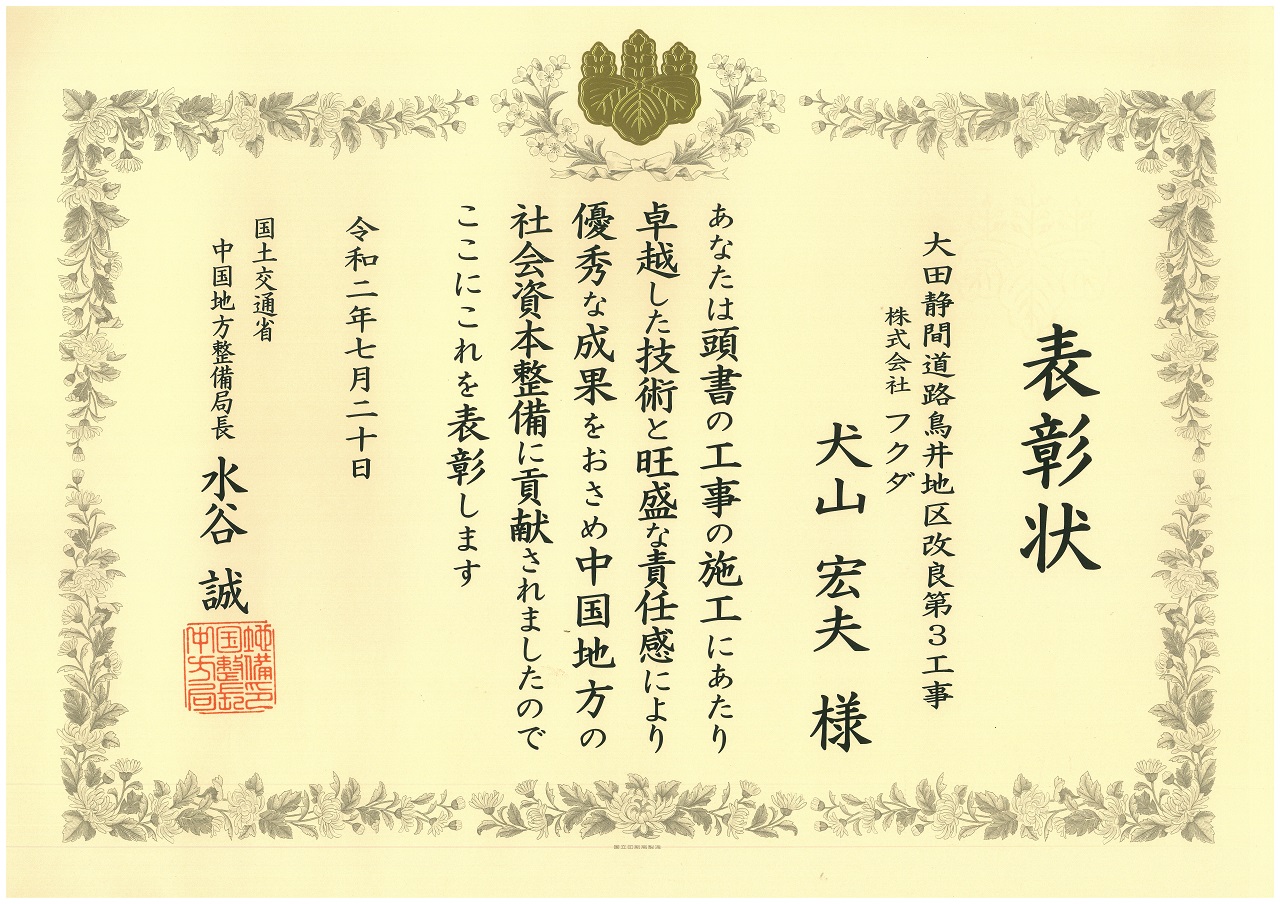 表彰状
大田静間道路鳥井地区改良第３工事
株式会社 フクダ
犬山 宏夫 様
あなたは頭書の工事の施工にあたり
卓越した技術と旺盛な責任感により
優秀な成果をおさめ中国地方の
社会資本整備に貢献されましたので
ここにこれを表彰します
令和二年七月二十日
国土交通省
中国地方整備局長 水谷 誠
国立印刷局製造